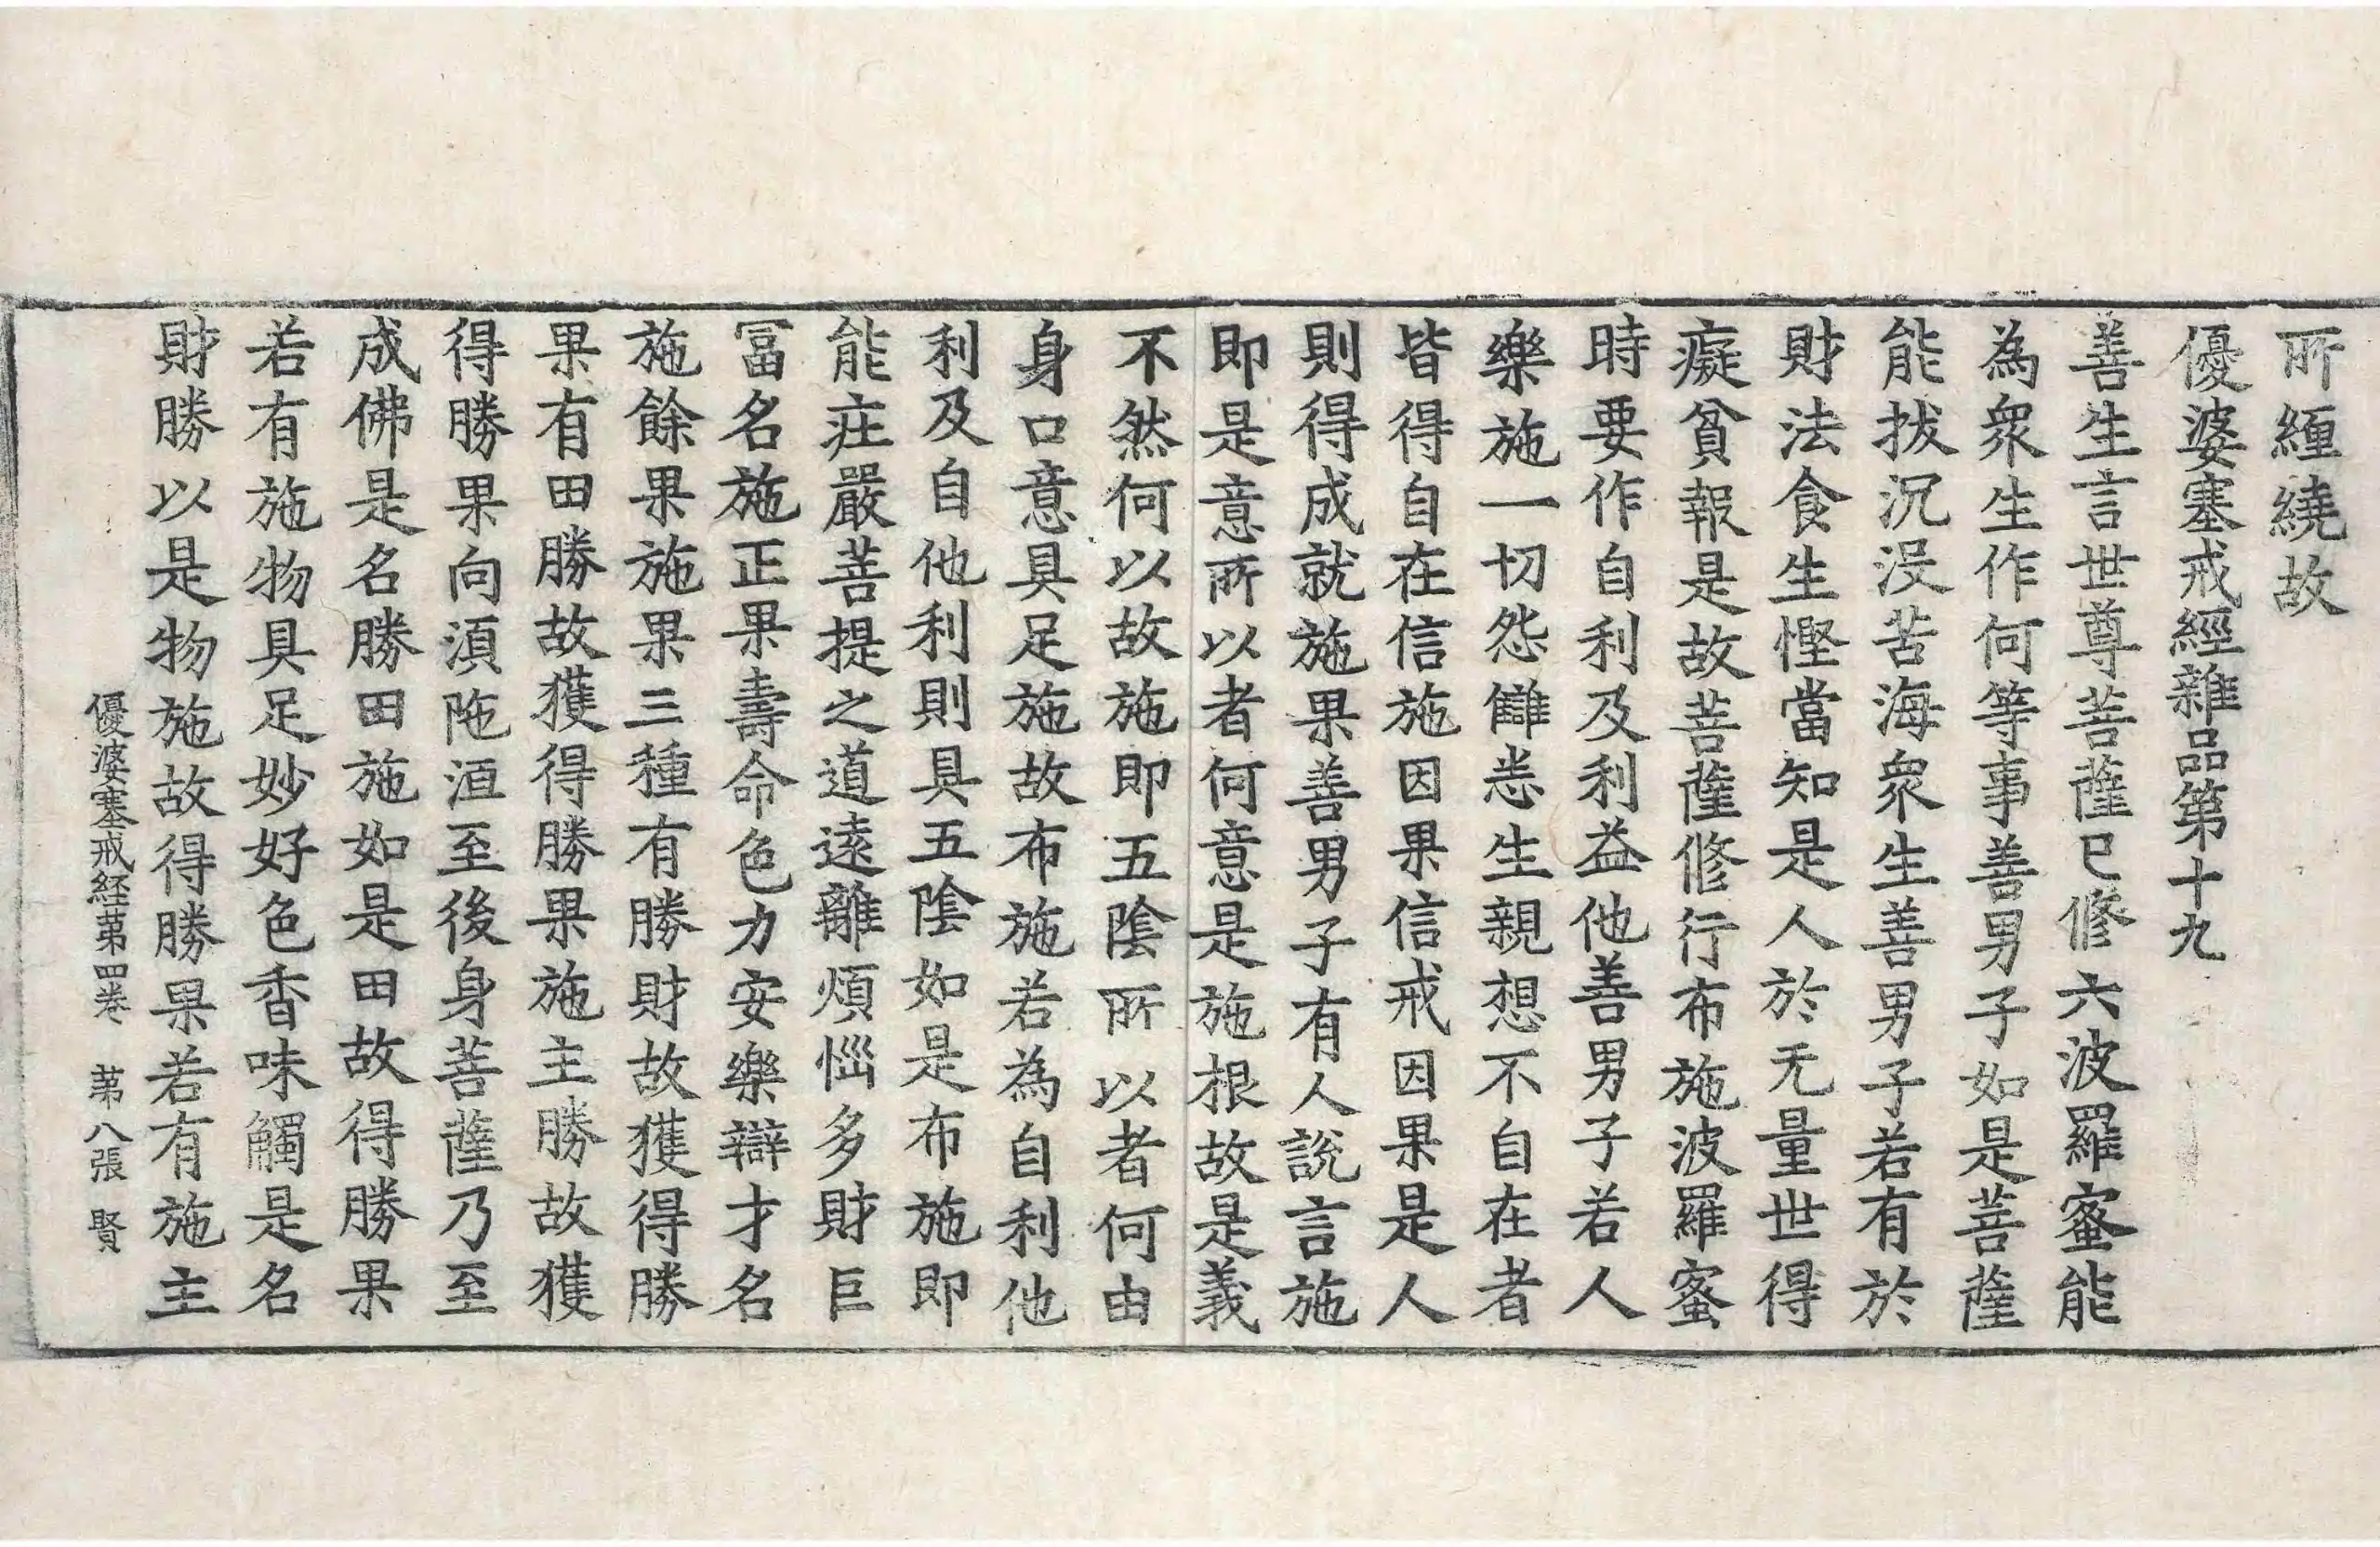 所緾繞故
優婆塞戒經雜品第十九
善生言世尊菩薩已修六波羅蜜能
為衆生作何等事善男子如是菩薩
能拔沉没苦海衆生善男子若有於
財法食生慳當知是人於无量世得
癡貧報是故菩薩修行布施波羅蜜
時要作自利及利益他善男子若人
樂施一切怨讎恙生親想不自在者
皆得自在信施因果信戒因果是人
則得成就施果善男子有人說言施
即是意所以者何意是施根故是義
不然何以故施即五陰所以者何由
身口意具足施故布施若為自利他
利及自他利則具五陰如是布施即
能莊嚴菩提之道遠離煩惱多財巨
冨名施正果壽命色力安樂辯才名
施餘果施果三種有勝財故獲得勝
果有田勝故獲得勝果施主勝故獲
得勝果向須陁洹至後身菩薩乃至
成佛是名勝田施如是田故得勝果
若有施物具足妙好色香味觸是名
財勝以是物施故得勝果若有施主
優婆塞戒経第四卷 第八張 賢